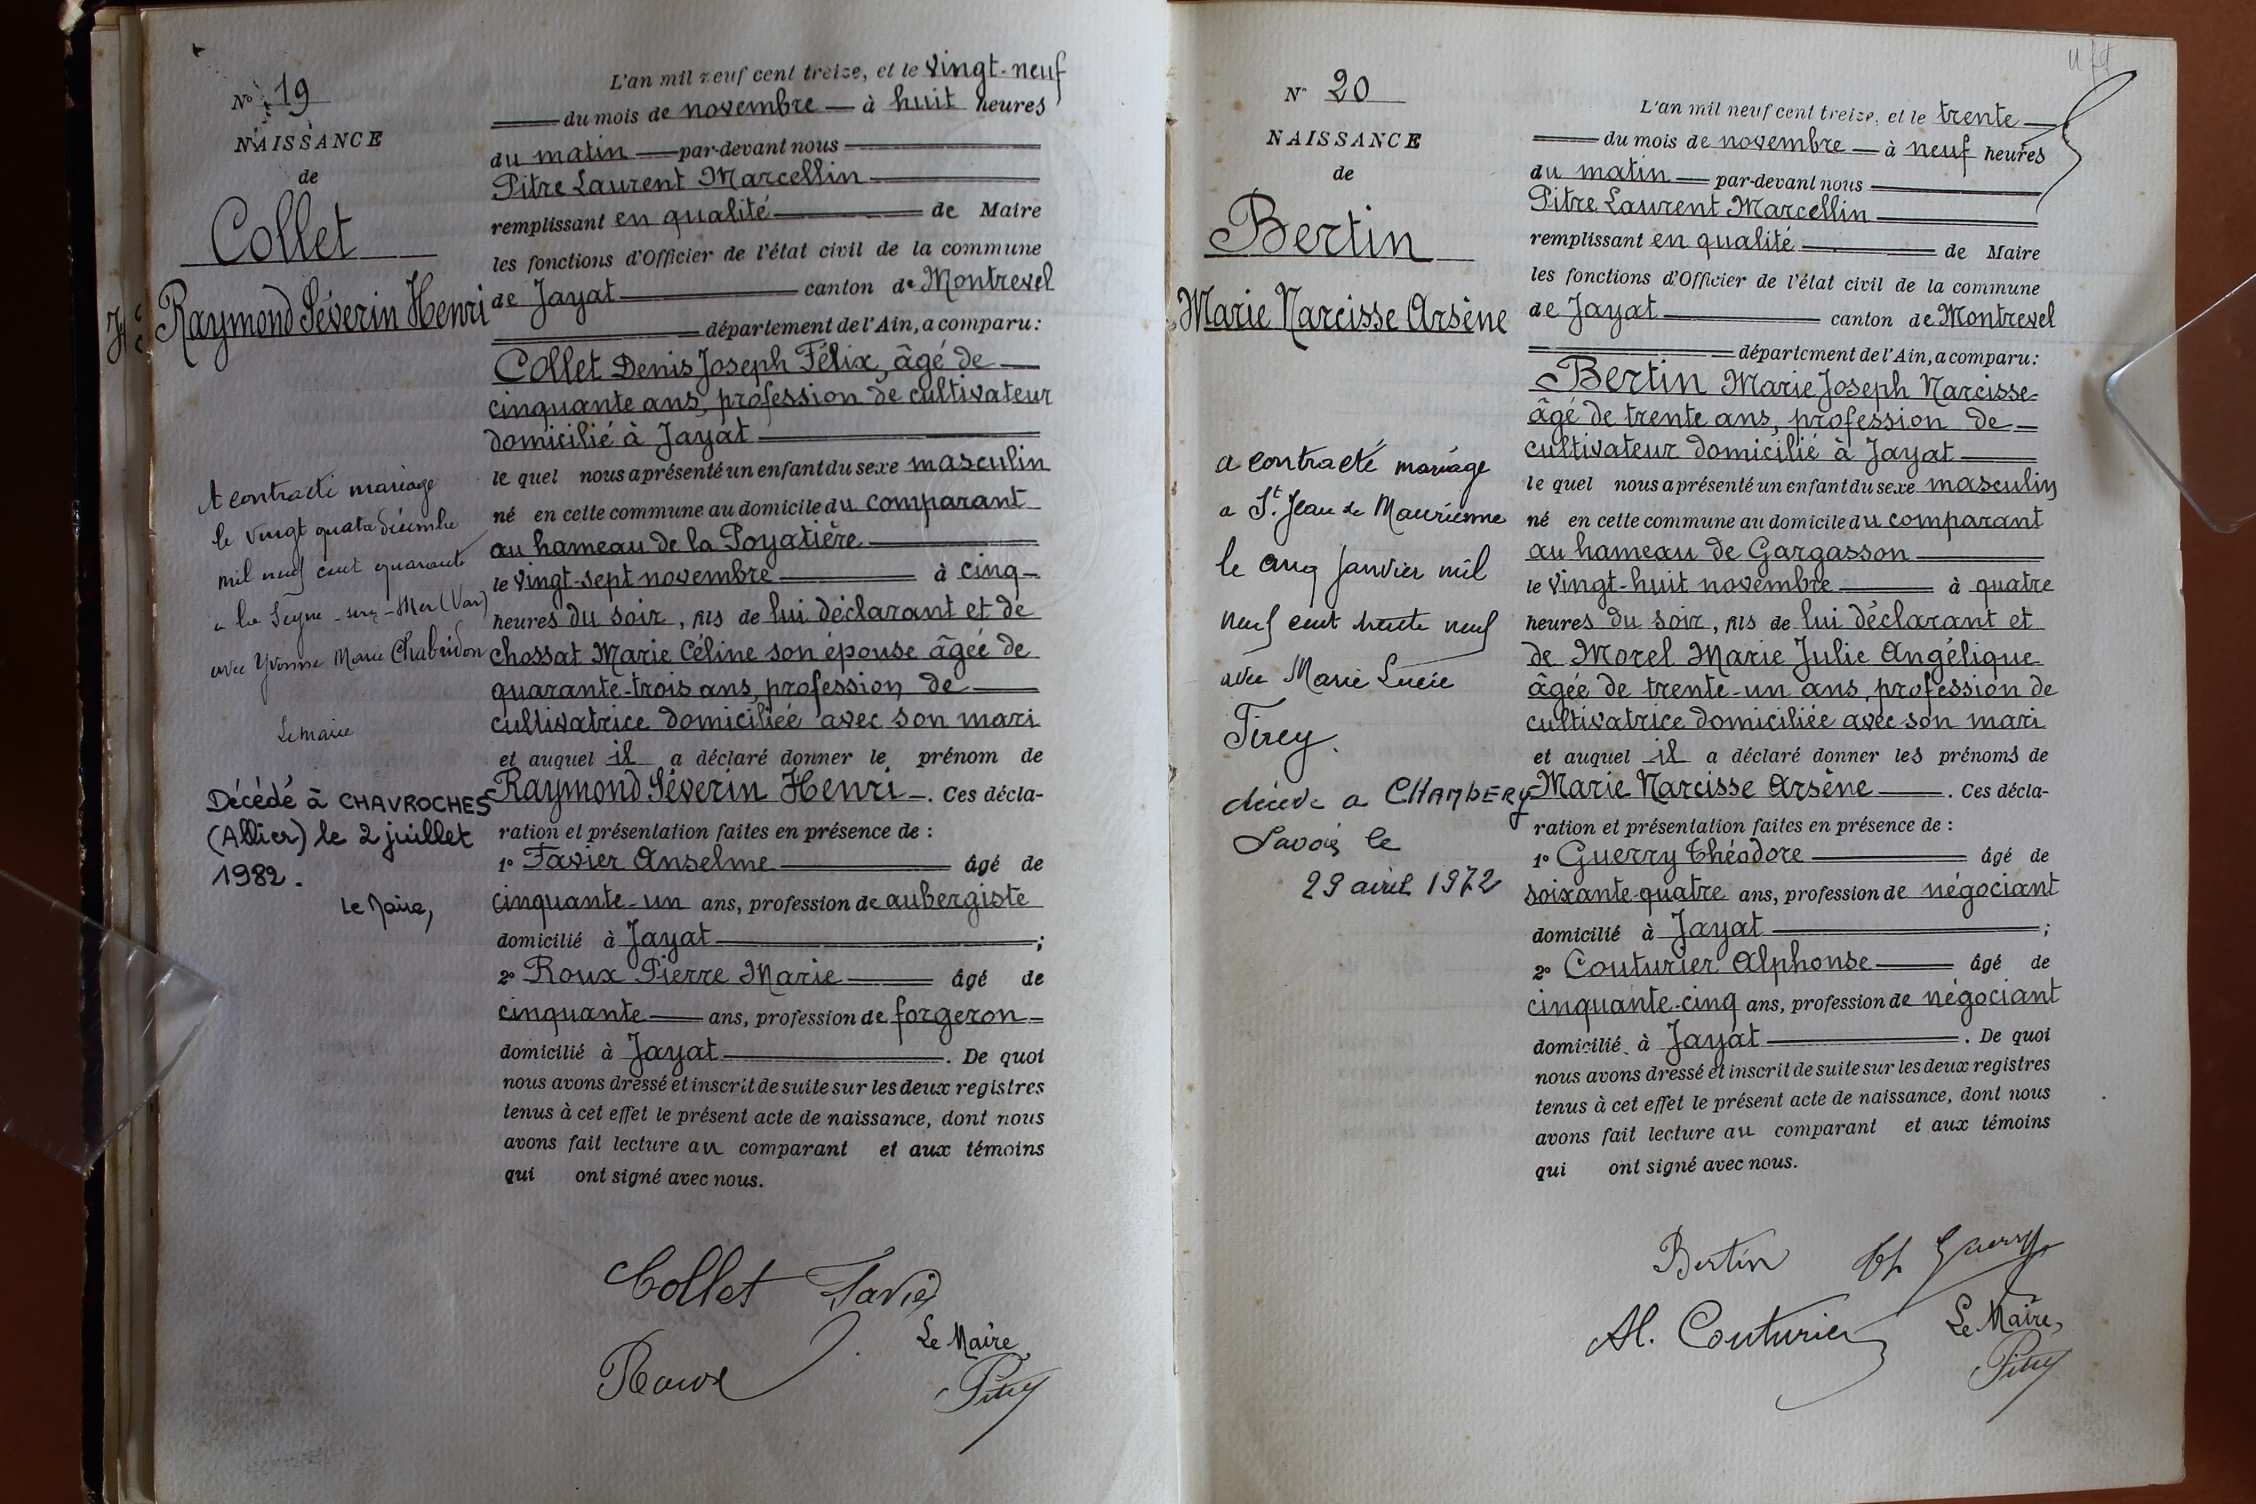 N° 19
NAISSANCE
de
Collet
Raymond Séverin Henri
A contracté mariage
le vingt quatre décembre
mil neuf cent quarante
à la Seyne-sur-Mer (Var)
avec Yvonne Marie Chabridon
Le maire
Décédé à CHAVROCHES
(Allier) le 2 juillet
1982.
Le Maire,
L'an mil neuf cent treize, et le vingt-neuf
du mois de novembre à huit heures
du matin par-devant nous
Pitre Laurent Marcellin
remplissant en qualité de Maire
les fonctions d'Officier de l'état civil de la commune
de Jayat canton de Montrevel
département de l'Ain, a comparu:
Collet Denis Joseph Félix, âgé de
cinquante ans, profession de cultivateur
domicilié à Jayat
le quel nous a présenté un enfant du sexe masculin
né en cette commune au domicile du comparant
au hameau de la Poyatière
le vingt-sept novembre à cinq
heures du soir, fils de lui déclarant et de
Chossat Marie Céline son épouse âgée de
quarante-trois ans, profession de
cultivatrice domiciliée avec son mari
et auquel il a déclaré donner le prénom de
Raymond Séverin Henri. Ces décla-
ration et présentation faites en présence de :
1° Favier Anselme âgé de
cinquante-un ans, profession de aubergiste
domicilié à Jayat ;
2° Roux Pierre Marie âgé de
cinquante ans, profession de forgeron
domicilié à Jayat. De quoi
nous avons dressé et inscrit de suite sur les deux registres
tenus à cet effet le présent acte de naissance, dont nous
avons fait lecture au comparant et aux témoins
qui ont signé avec nous.
Collet Favier
Roux Le Maire,
Pitre
N° 20
NAISSANCE
de
Bertin
Marie Narcisse Arsène
a contracté mariage
a St. Jean de Maurienne
le cinq janvier mil
neuf cent trente neuf
avec Marie Lucie
Tirey.
décédé a CHAMBERY
Savoie le
29 avril 1972
L'an mil neuf cent treize, et le trente
du mois de novembre à neuf heures
du matin par-devant nous
Pitre Laurent Marcellin
remplissant en qualité de Maire
les fonctions d'Officier de l'état civil de la commune
de Jayat canton de Montrevel
département de l'Ain, a comparu:
Bertin Marie Joseph Narcisse
âgé de trente ans, profession de
cultivateur domicilié à Jayat
le quel nous a présenté un enfant du sexe masculin
né en cette commune au domicile du comparant
au hameau de Gargasson
le vingt-huit novembre à quatre
heures du soir, fils de lui déclarant et
de Morel Marie Julie Angélique
âgée de trente-un ans, profession de
cultivatrice domiciliée avec son mari
et auquel il a déclaré donner les prénoms de
Marie Narcisse Arsène. Ces décla-
ration et présentation faites en présence de :
1° Guerry Théodore âgé de
soixante-quatre ans, profession de négociant
domicilié à Jayat ;
2° Couturier Alphonse âgé de
cinquante-cinq ans, profession de négociant
domicilié à Jayat. De quoi
nous avons dressé et inscrit de suite sur les deux registres
tenus à cet effet le présent acte de naissance, dont nous
avons fait lecture au comparant et aux témoins
qui ont signé avec nous.
Bertin Th Guerry
Al. Couturier Le Maire,
Pitre